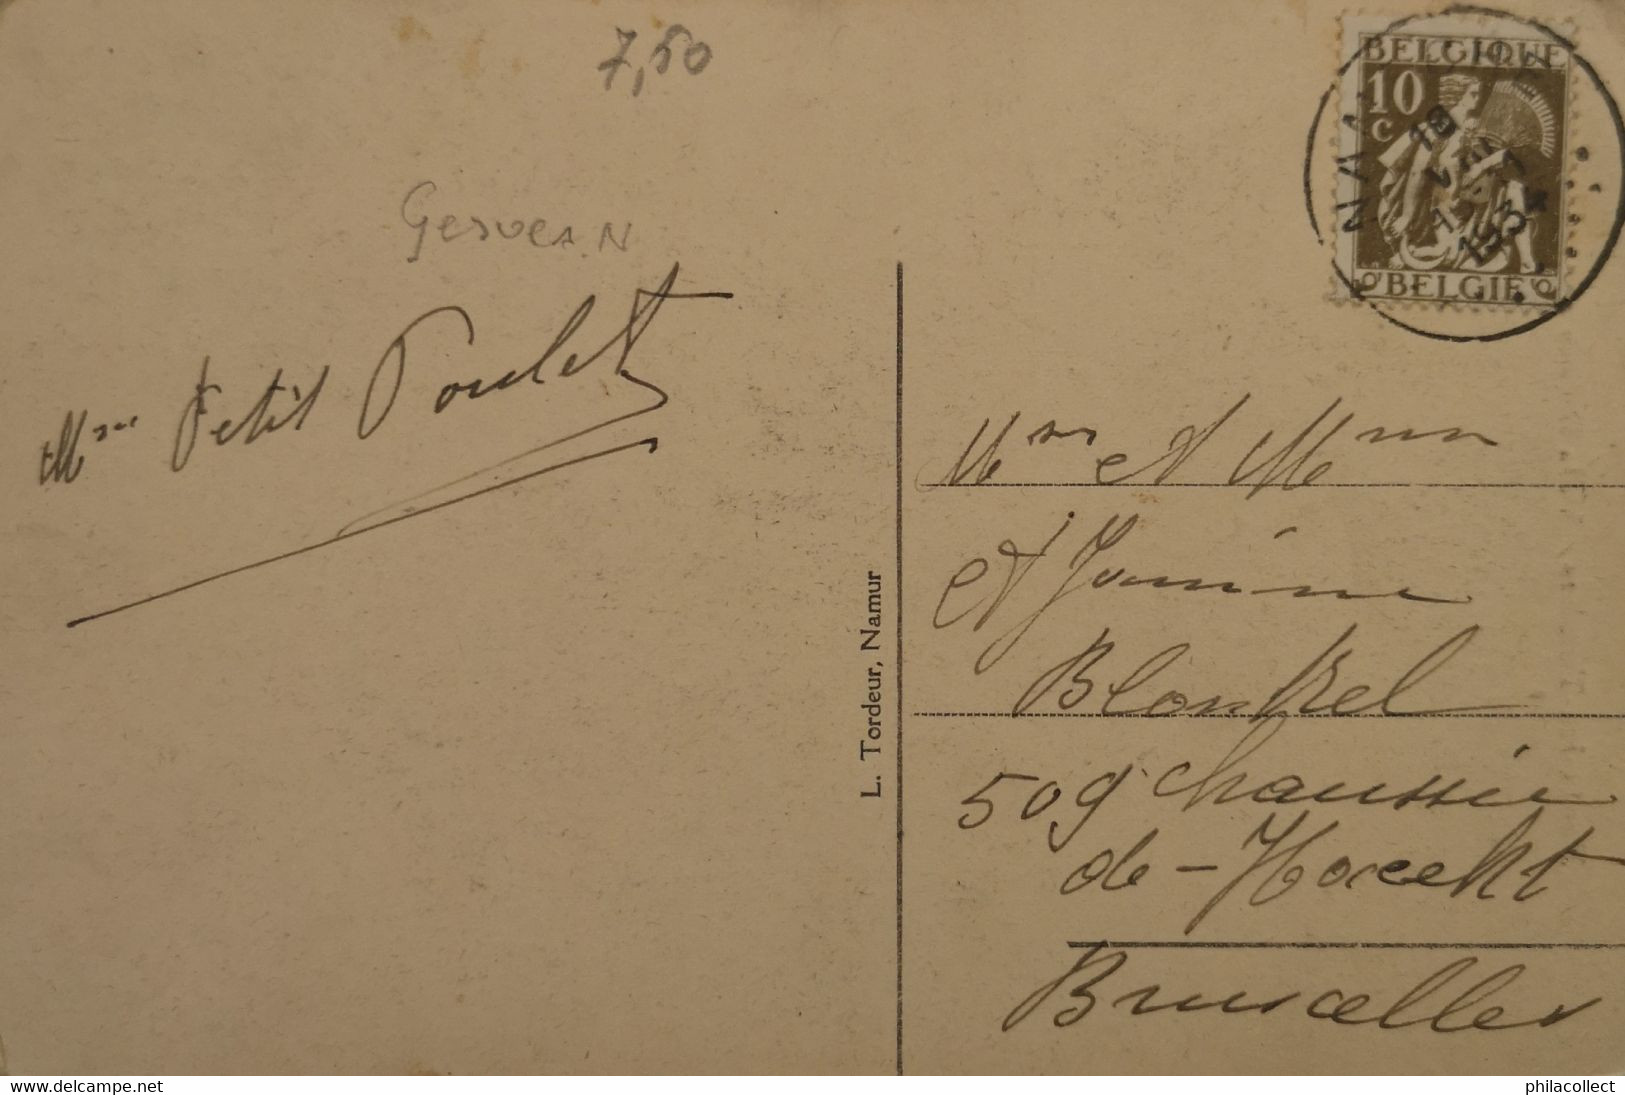 7,50
BELGIQUE
10
c
18
VIII
1934
BELGIE
Mme Petit Poulet
Mr et Mme
et Janine
Blonkel
509 Chaussée
de-Haecht
Bruxelles
L. Tordeur, Namur
www.delcampe.net
philacollect